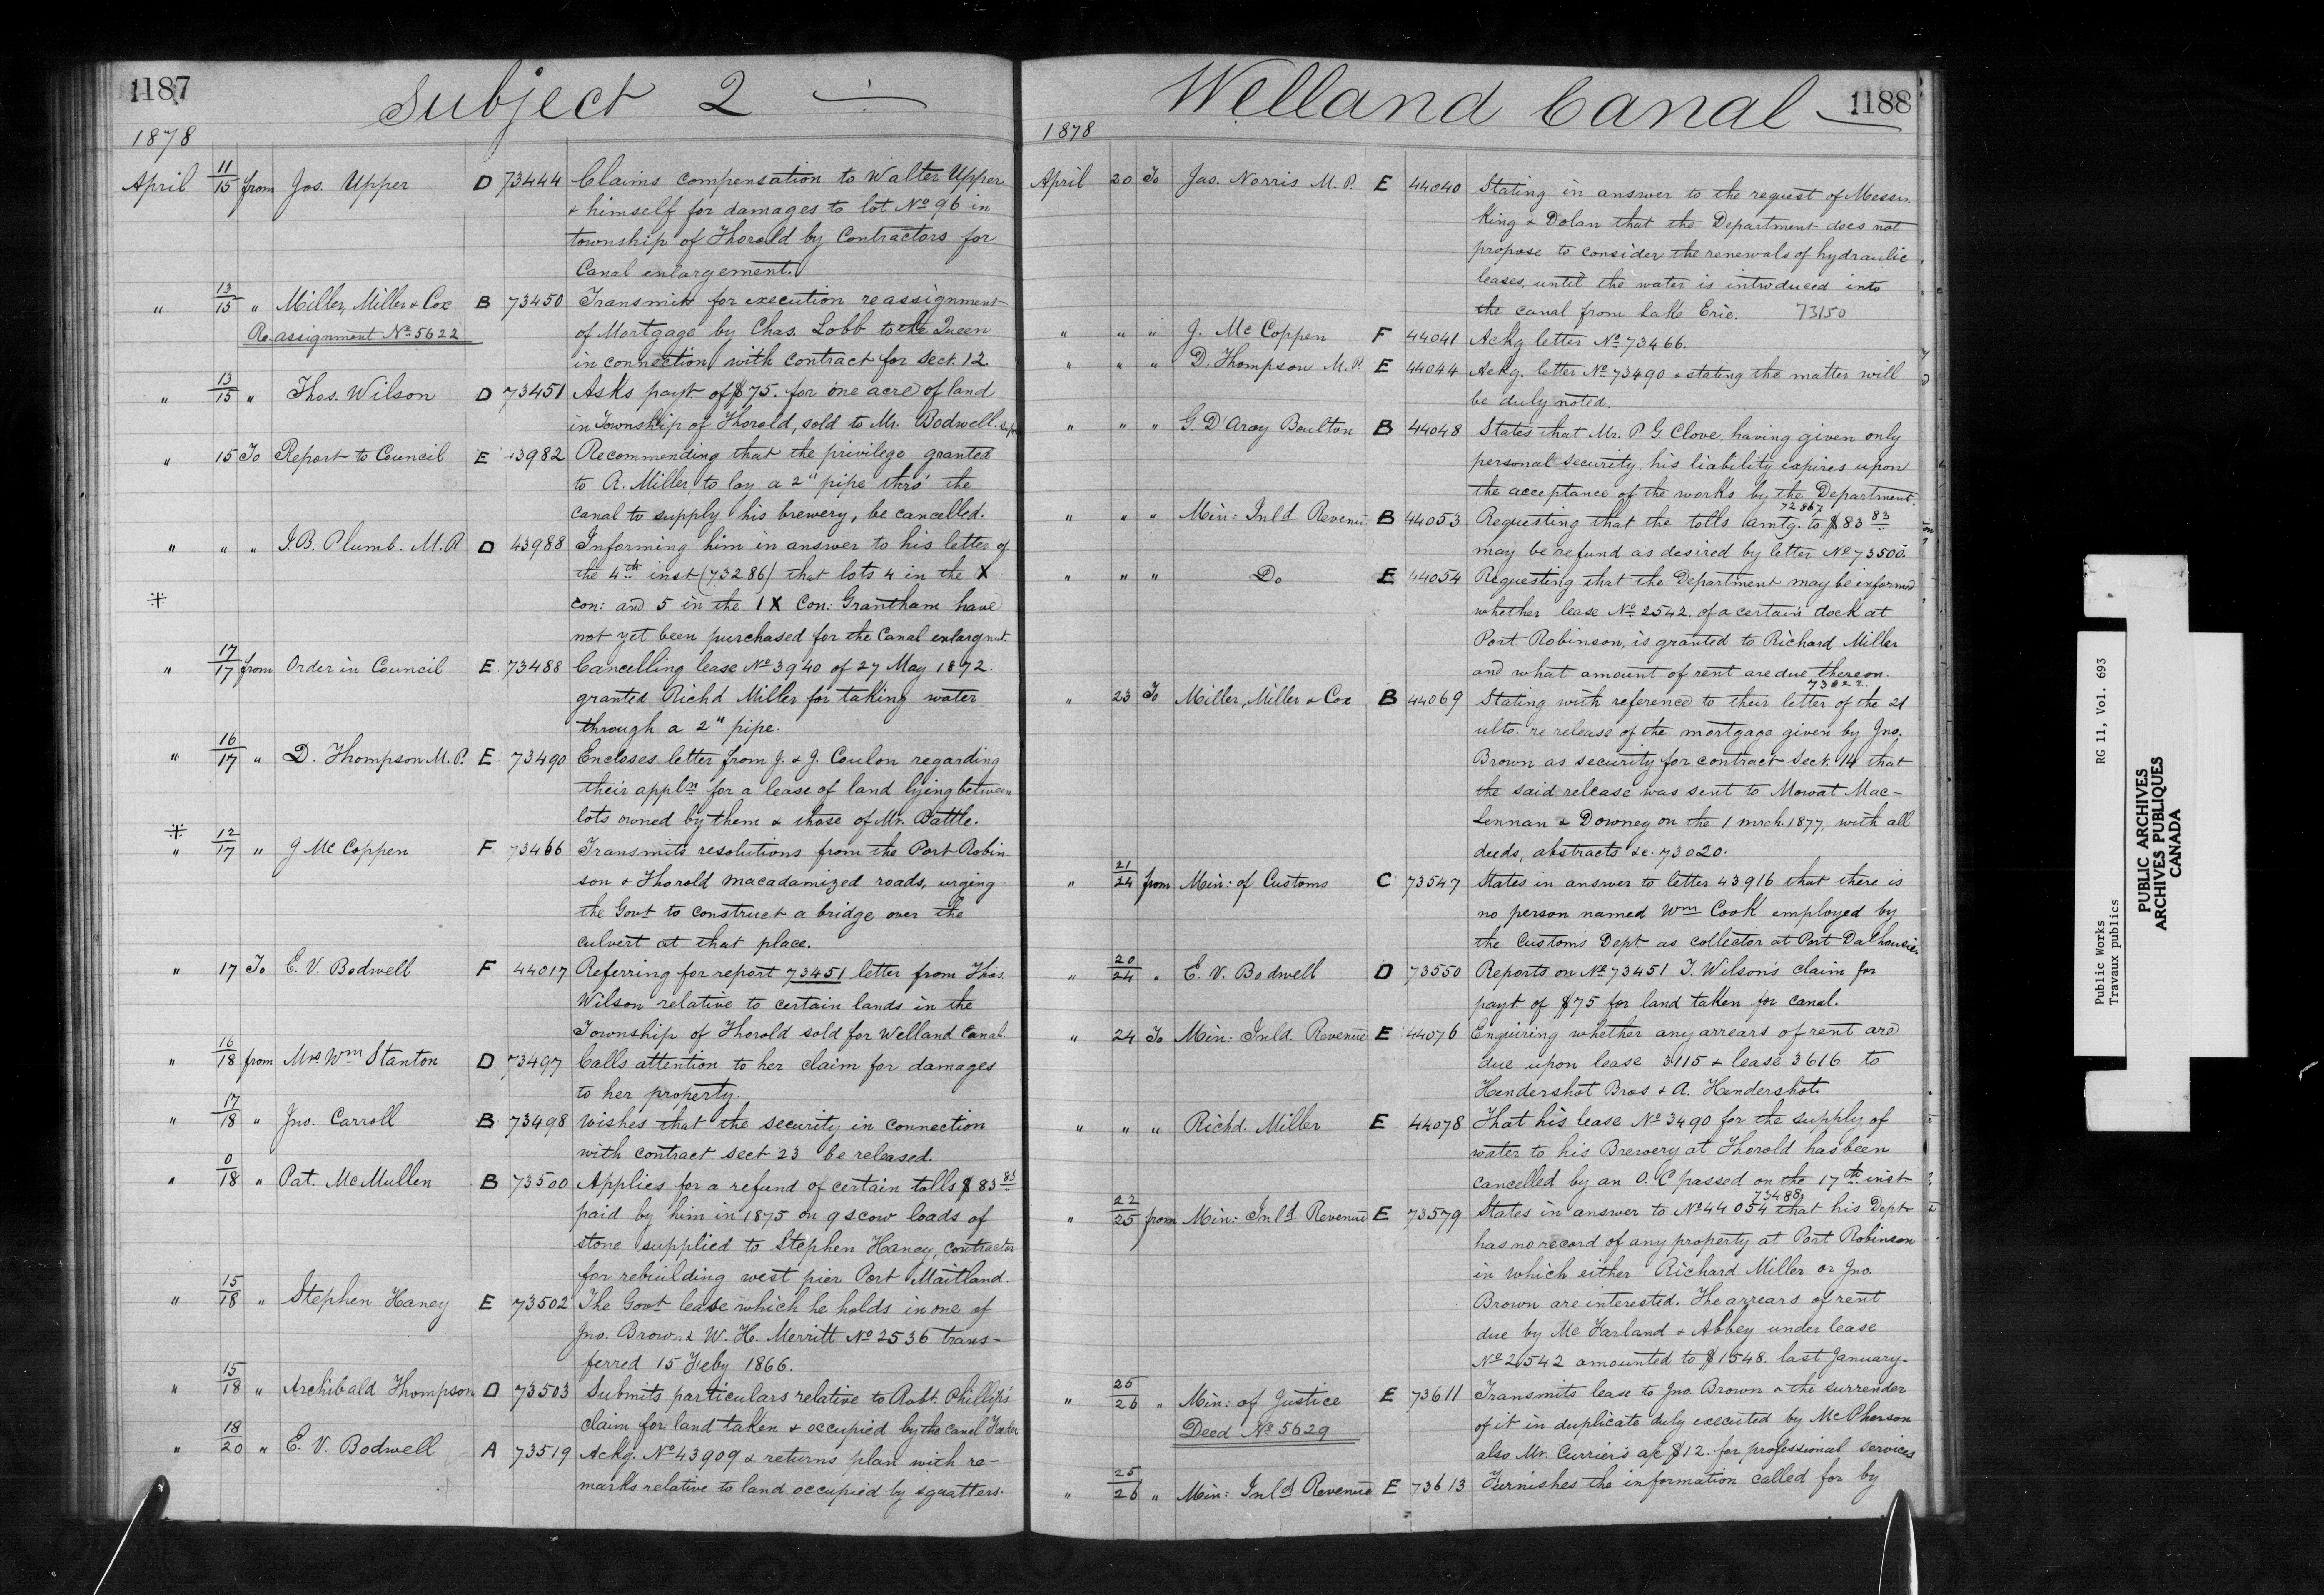 1187
Subject 2 —
1878
April 11/15 from Jos. Upper D 73444 Claims compensation to Walter Upper
& himself for damages to lot No 96 in
township of Thorold by Contractors for
Canal enlargement.
" 13/15 " Miller, Miller & Cox B 73450 Transmits for execution reassignment
Re assignment No 5622 of Mortgage by Chas. Lobb to the Queen
in connection with contract for Sect. 12
" 13/15 " Thos. Wilson D 73451 Asks payt of $75. for one acre of land
in Township of Thorold, sold to Mr. Bodwell.
" 15 To Report to Council E 43982 Recommending that the privilege granted
to A. Miller, to lay a 2" pipe thro' the
canal to supply his brewery, be cancelled.
" " " J. B. Plumb. M. P. D 43988 Informing him in answer to his letter of
the 4th inst (73286) that lots 4 in the X
con: and 5 in the IX Con: Grantham have
not yet been purchased for the Canal enlargmt
" 17/17 from Order in Council E 73488 Cancelling lease No 3940 of 27 May 1872.
granted Richd Miller for taking water
through a 2" pipe.
" 16/17 " D. Thompson M. P. E 73490 Encloses letter from J. & J. Coulon regarding
their appln for a lease of land lying between
lots owned by them & those of Mr. Battle.
" 12/17 " J McCoppen F 73466 Transmits resolutions from the Port Robin
son & Thorold macadamized roads, urging
the Govt to construct a bridge over the
culvert at that place.
" 17 To E. V. Bodwell F 44017 Referring for report 73451 letter from Thos.
Wilson relative to certain lands in the
Township of Thorold sold for Welland Canal.
" 16/18 from Mrs Wm Stanton D 73497 Calls attention to her claim for damages
to her property.
" 17/18 " Jno. Carroll B 73498 Wishes that the security in connection
with contract sect 23 be released.
" 0/18 " Pat. McMullen B 73500 Applies for a refund of certain tolls $83 83
paid by him in 1875 on 9 scow loads of
stone supplied to Stephen Haney, contractor
for rebuilding west pier Port Maitland.
" 15/18 " Stephen Haney E 73502 The Govt lease which he holds in one of
Jno. Brown & W. H. Merritt No 2536 trans-
ferred 15 Feby 1866.
" 15/18 " Archibald Thompson D 73503 Submits particulars relative to Robt. Phillip's
claim for land taken & occupied by the Canal Feeder
" 18/20 " E. V. Bodwell A 73519 Ackg. No 43909 & returns plan with re-
marks relative to land occupied by squatters.
Welland Canal — 1188
1878
April 20 To Jas. Norris M. P. E 44040 Stating in answer to the request of Messrs.
King & Dolan that the Department does not
propose to consider the renewals of hydraulic
leases, until the water is introduced into
the canal from Lake Erie. 73150
" " " J. McCoppen F 44041 Ackg letter No 73466.
" " " D. Thompson M. P. E 44044 Ackg. letter No 73490 & stating the matter will
be duly noted.
" " " G. D'Arcy Boulton B 44048 States that Mr. P. G. Clove, having given only
personal security, his liability expires upon
the acceptance of the works by the Department.
72867
" " " Min: Inld Revenue B 44053 Requesting that the tolls amtg. to $83 83
may be refund as desired by letter No 73500.
" " " Do E 44054 Requesting that the Department may be informed
whether lease No 2542. of a certain dock at
Port Robinson, is granted to Richard Miller
and what amount of rent are due thereon.
73022.
" 23 To Miller, Miller & Cox B 44069 Stating with reference to their letter of the 21
ulto. re release of the mortgage given by Jno.
Brown as security for contract Sect. 14 that
the said release was sent to Mowat Mac-
Lennan & Downey on the 1 mrch. 1877, with all
deeds, abstracts &c. 73020.
" 21/24 from Min: of Customs C 73547 States in answer to letter 43916 that there is
no person named Wm Cook employed by
the Customs Dept as collector at Port Dalhousie.
" 20/24 " E. V. Bodwell D 73550 Reports on No 73451 T. Wilson's claim for
payt. of $75 for land taken for canal.
" 24 To Min: Inld. Revenue E 44076 Enquiring whether any arrears of rent are
due upon lease 3115 & lease 3616 to
Hendershot Bros & A. Hendershot.
" " " Richd. Miller E 44078 That his lease No 3490 for the supply of
water to his Brewery at Thorold has been
cancelled by an O. C. passed on the 17th inst
73488
" 22/25 from Min: Inld Revenue E 73579 States in answer to No 44054 that his Dept
has no record of any property at Port Robinson
in which either Richard Miller or Jno.
Brown are interested. The arrears of rent
due by McFarland & Abbey under lease
No 2542 amounted to $1548. last January.
" 25/26 " Min: of Justice E 73611 Transmits lease to Jno. Brown & the surrender
Deed No 5629 of it in duplicate duly executed by McPherson
also Mr. Currier's a/c $12. for professional services
" 25/26 " Min: Inld Revenue E 73613 Furnishes the information called for by
Public Works RG 11, Vol. 693
Travaux publics
PUBLIC ARCHIVES
ARCHIVES PUBLIQUES
CANADA